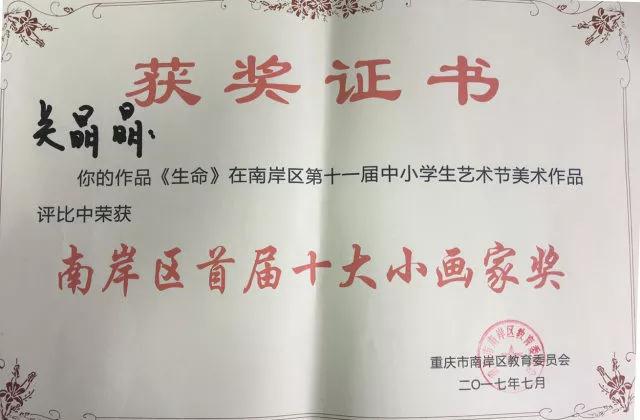 获奖证书
吴晶晶:
你的作品《生命》在南岸区第十一届中小学生艺术节美术作品
评比中荣获
南岸区首届十大小画家奖
重庆市南岸区教育委员会
二〇一七年七月